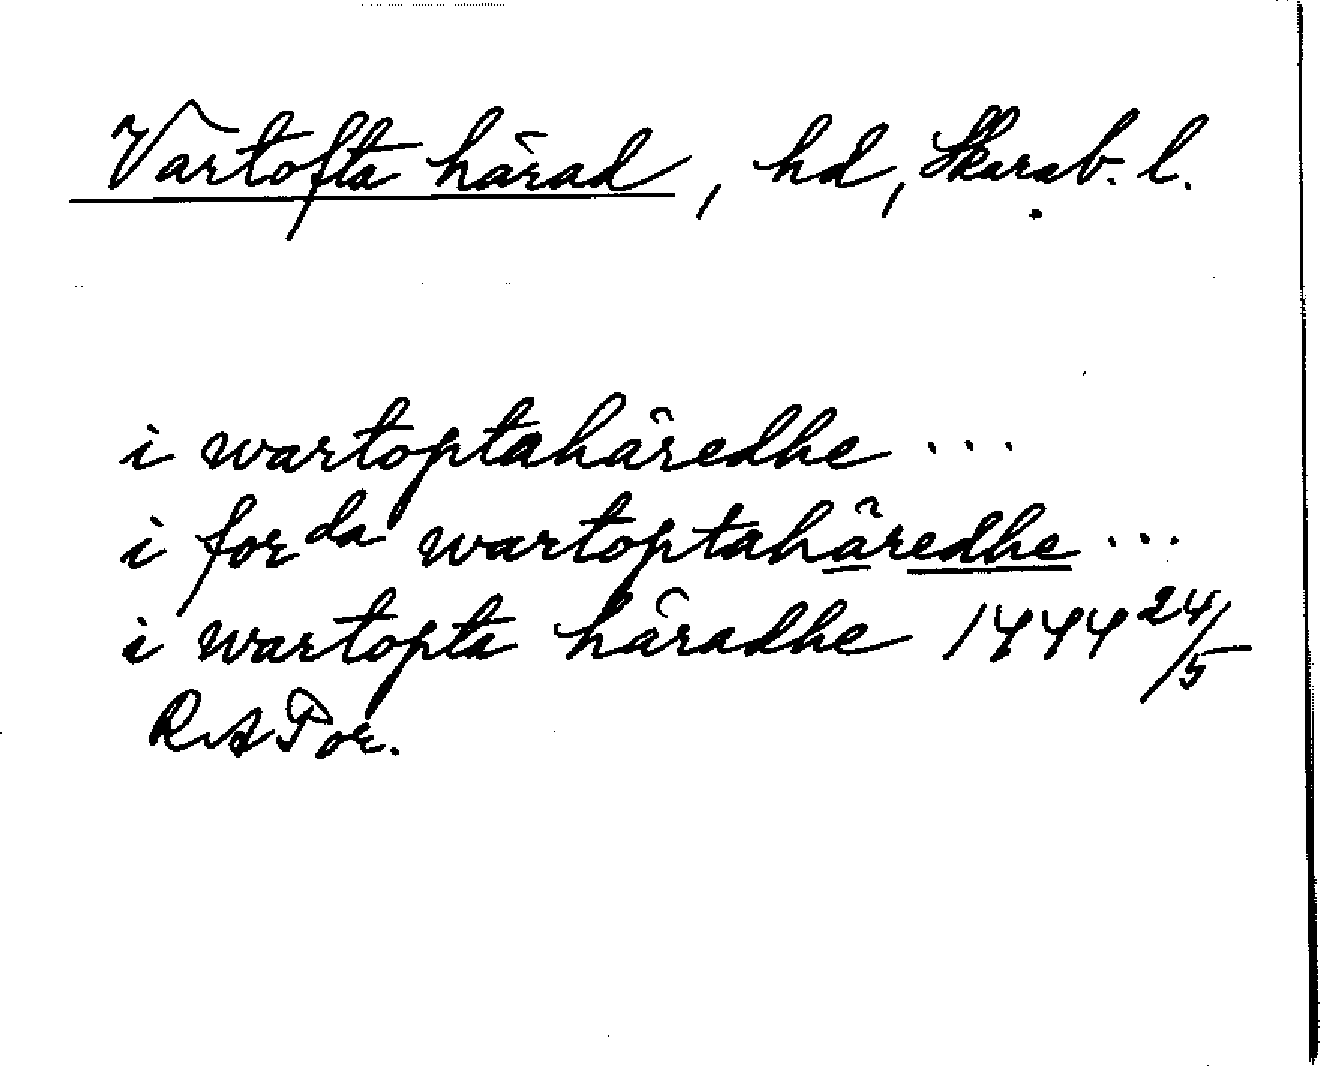 Vartofta härad, hd, Skarab. l.
i wartoptahäredhe ...
i for da wartoptahäredhe ...
i wartopta häradhe 1444 24/5
RAPor.